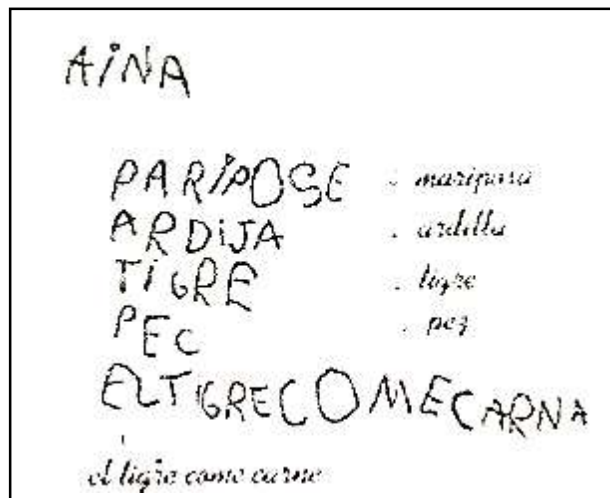 AiNA
PARiPOSE : mariposa
ARDiJA . ardilla
TiGRE . tigre
PEC . pez
ELTIGRECOMECARNA
el tigre come carne